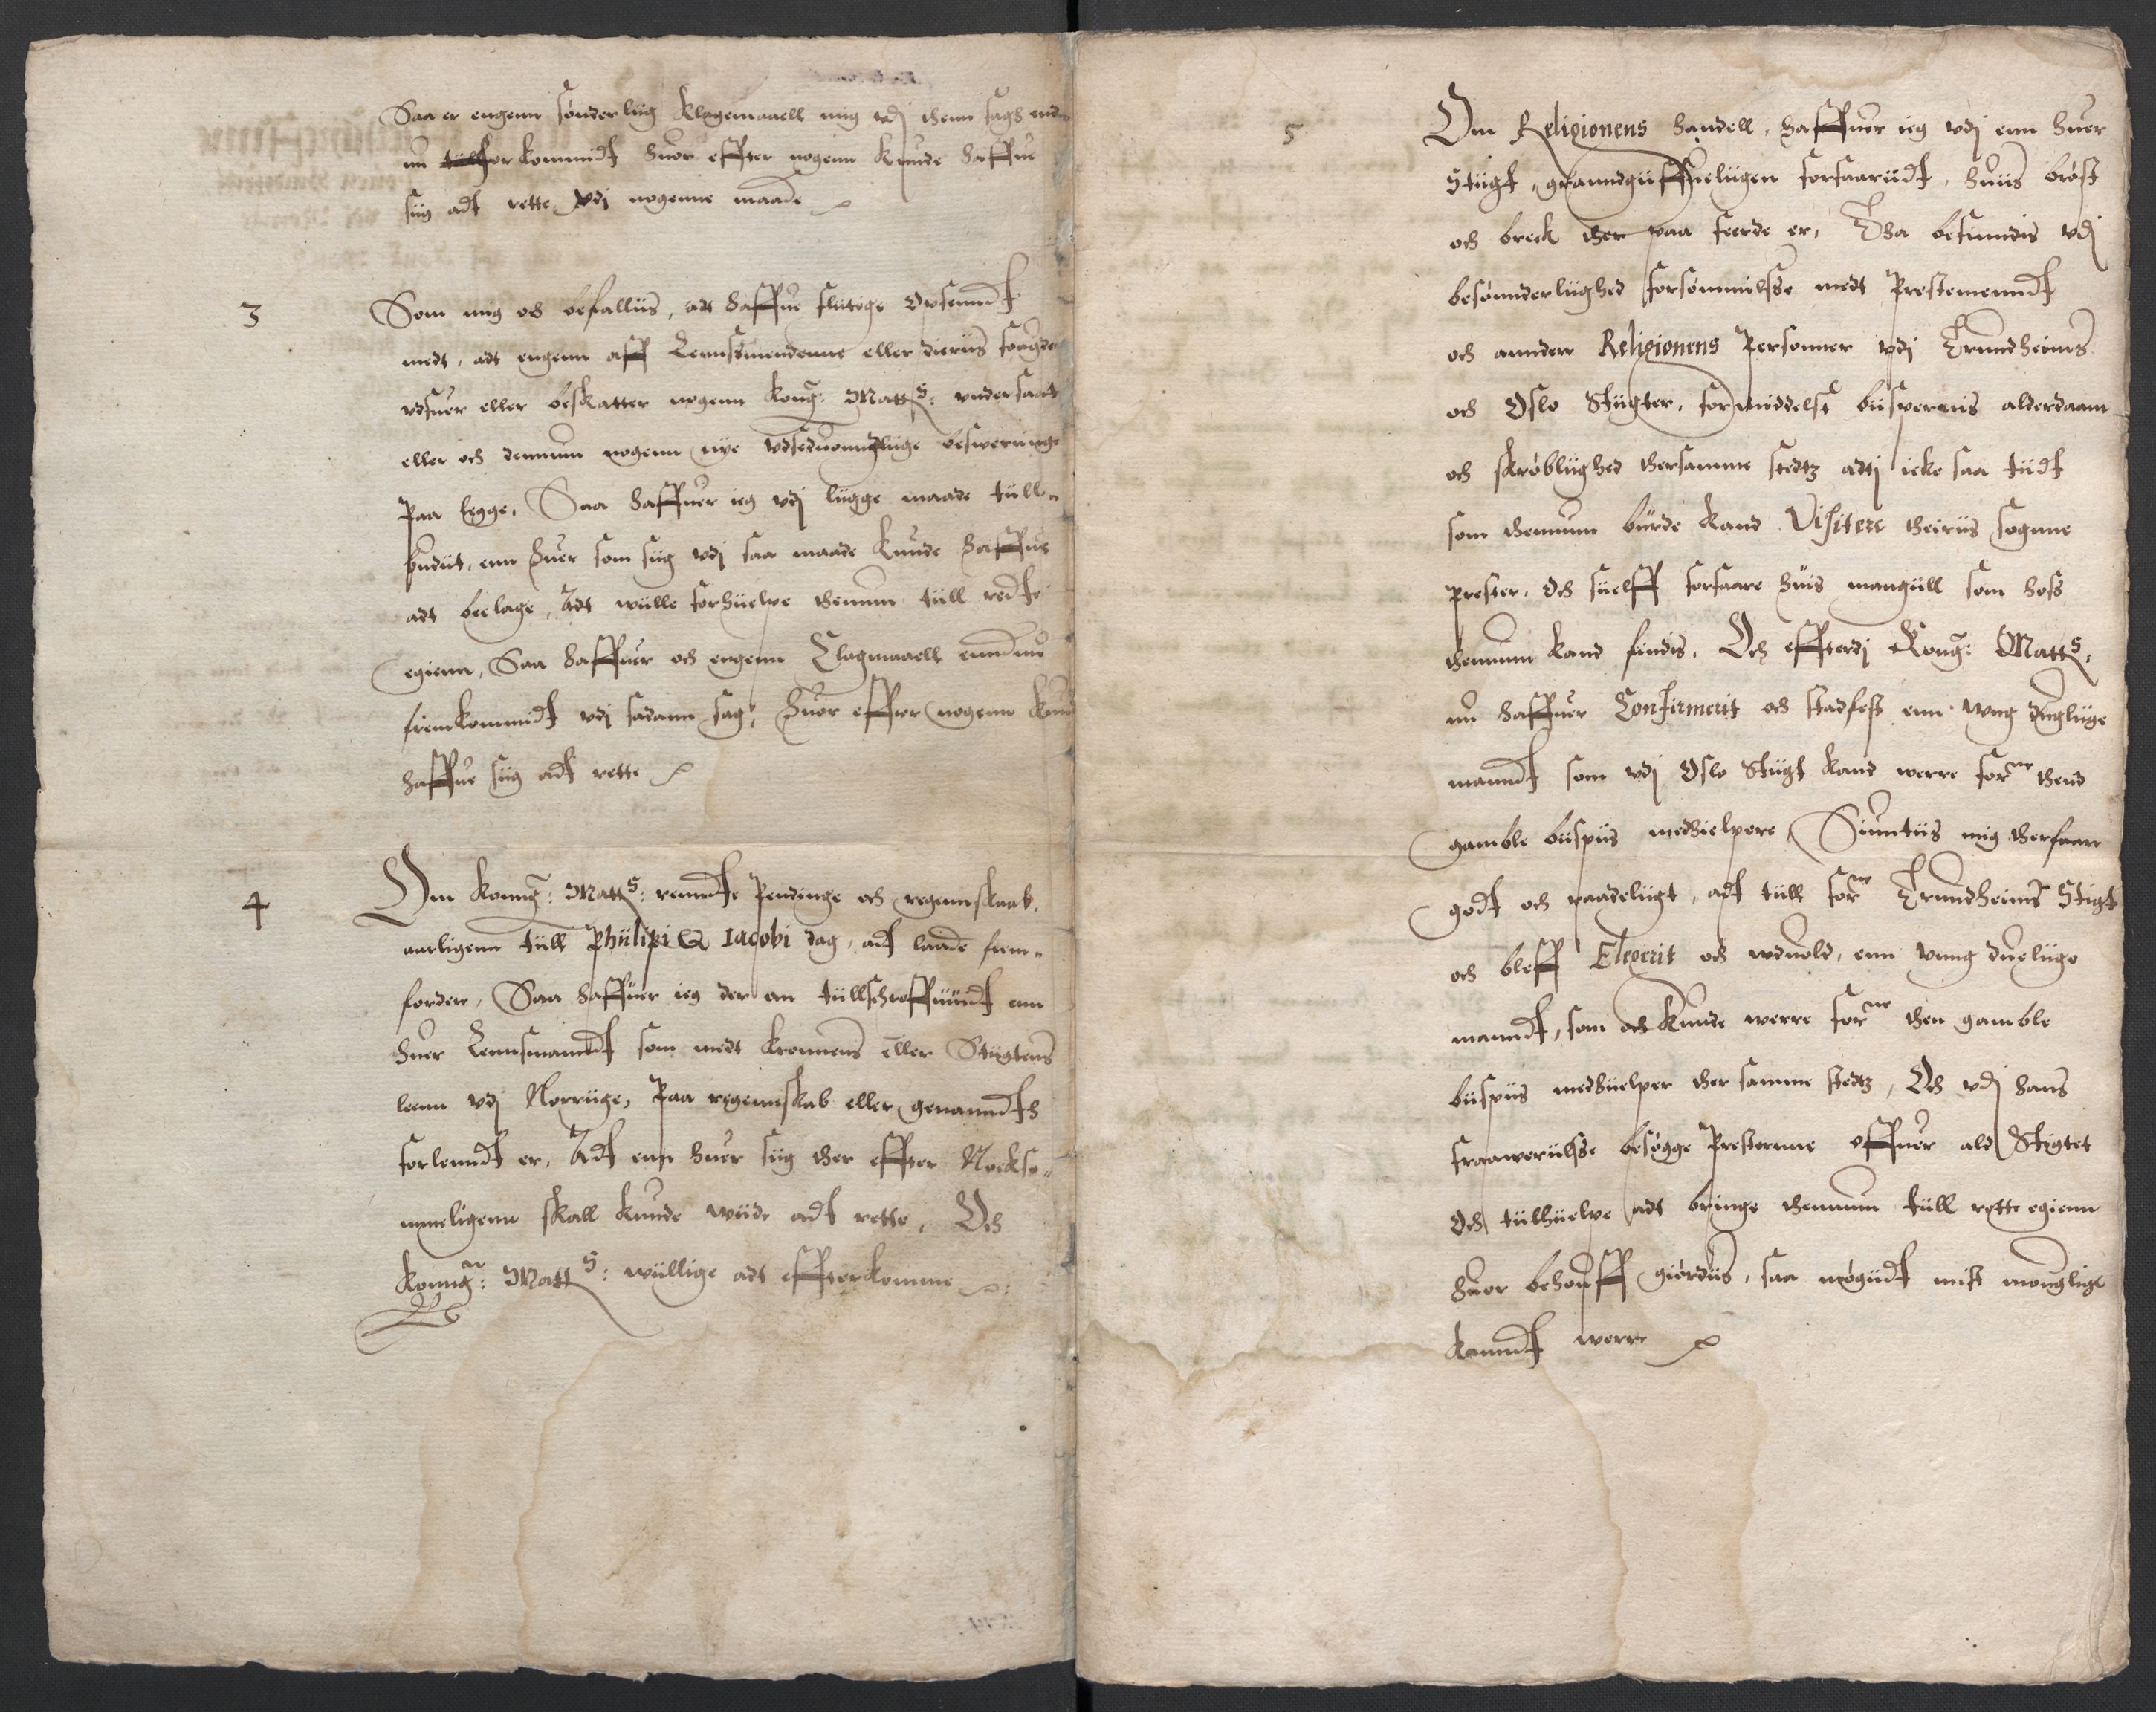 Saa er engenn sønderlüg klagemaaell mig vdj thenn sagh end
nu forkommidt huor effter nogenn kunde haffue
süg adt rette vdj nogenne maade
3
Som mig och befallüs, att haffue flütige Opseenndt
medt, adt engenn aff Lennsmendenne eller dieriis fougder
vdsuer eller beskatter nogenn Kong: Matts: vndersaat
eller och dennum nogenn nye vdseduonndlüge besweringe
paa legge, Saa haffuer ieg vdj lügge maade tüll-
budüt, enn huer som süg vdj saa maade kunde haffue
adt beclage, Adt wülle forhüelpe thennum tüll redte
egienn, Saa haffuer och engenn Clagmaaell enndnu
fremkommidt vdj sadann sag, huor effter nogenn kund
haffue süg adt rette
4
Om Konng: Matts: renndte Pendinge och regennskaab,
aarligenn tüll Phülipi & Iacobi dag, adt laade frem-
forder, Saa haffuer ieg der om tüllschreffüüdt enn
huer Lennsmanndt som medt kronnens eller Stügtens
leenn vdj Norrüge, paa regennskab eller genanndth
forlenndt er, Adt enn huer süg ther effter Nockso-
mmeligenn skall kunde wüde adt rette, Och
Konng: Matts: wüllige adt effterkomme
5
Om Religionens handell, haffuer ieg vdj enn huer
Stügt, granndgüffuelügen forfaarüdt, huüs brøst
och breck ther paa feerde er, Tha befinndis vdj
besønnderlüghed forsømmülsse medt Prestemenndt
och annder Religionens Personner vdj Trundheims
och Oslo Stügter, formiddelst büspernis alderdaam
och skrøblüghed thersamme stedtz adtj icke saa tüdt
som thennum bürde kand Visitere theiris sognne
prester, Och süelff forfaare huis mangüll som hoss
thennum kand findis, Och effterdj Kong: Matts:
nu haffuer Confirmerit och stadfest enn vng duglüge
manndt som vdj Oslo Stügt kand werre forne thend
gamble büspüs medhielpere, Siuntüs mig therfaare
godt och raadelügt, adt tüll forne Trundheims Stigt
och bleff Elegerit och wduold, enn vnng duelüge
manndt, som och kunde werre forne then gamble
büspüs medhüelper ther samme stedtz, Och vdj hans
frawerülsse besøgge Presterne offuer ald Stigtet
och tülhüelpe adt bringe thennum tüll rette egienn
huor behouff giørdüs, saa møgüdt mist mønglige
kanndt werre